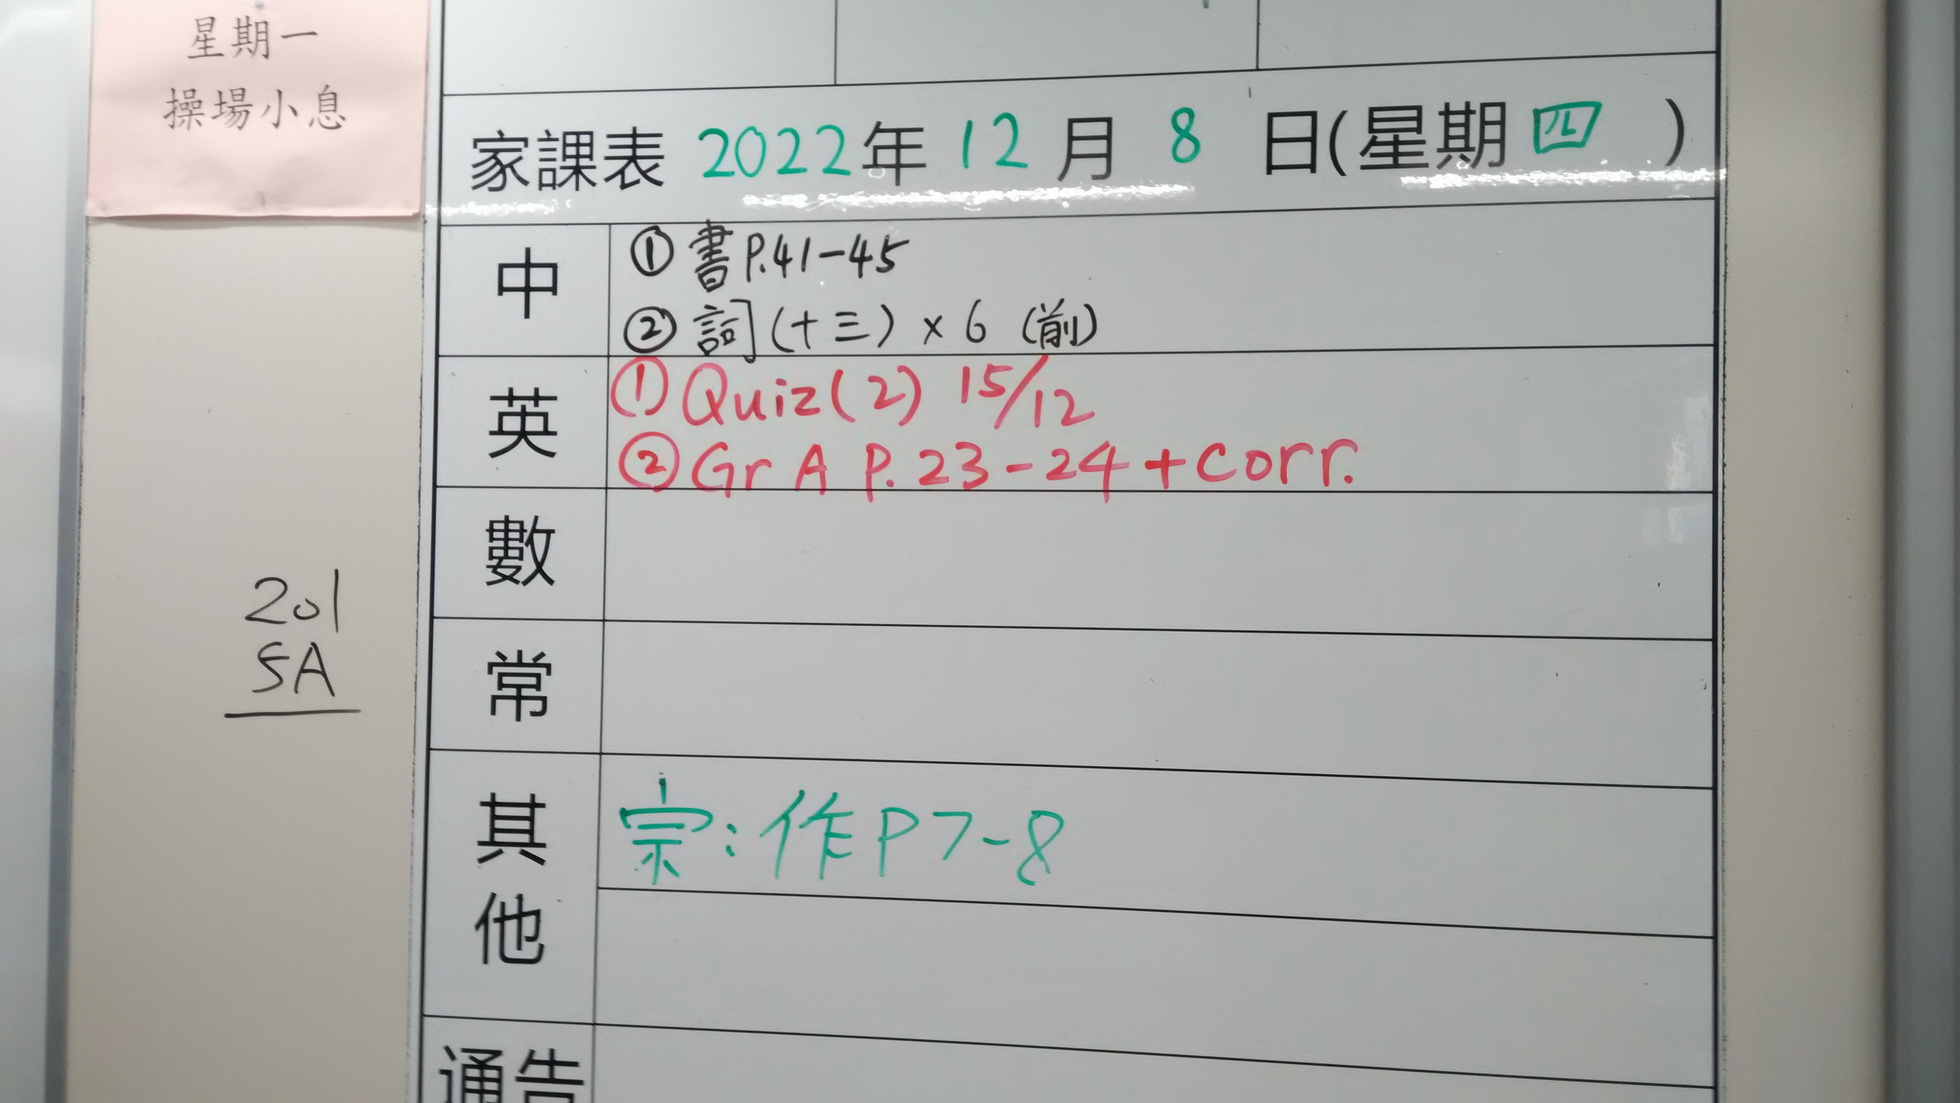 星期一
操場小息
家課表 2022年 12月 8 日(星期四 )
中
① 書P.41-45
② 詞(十三) × 6 (削)
英
① Quiz(2) 15/12
② Gr A P. 23-24 + corr.
數
常
其他
宗:作P7-8
通告
201
5A